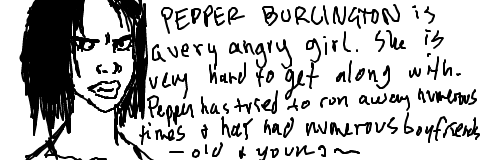 PEPPER BURLINGTON is
a very angry girl. She is
very hard to get along with.
Pepper has tried to run away numerous
times & has had numerous boyfriends
— old & young ~